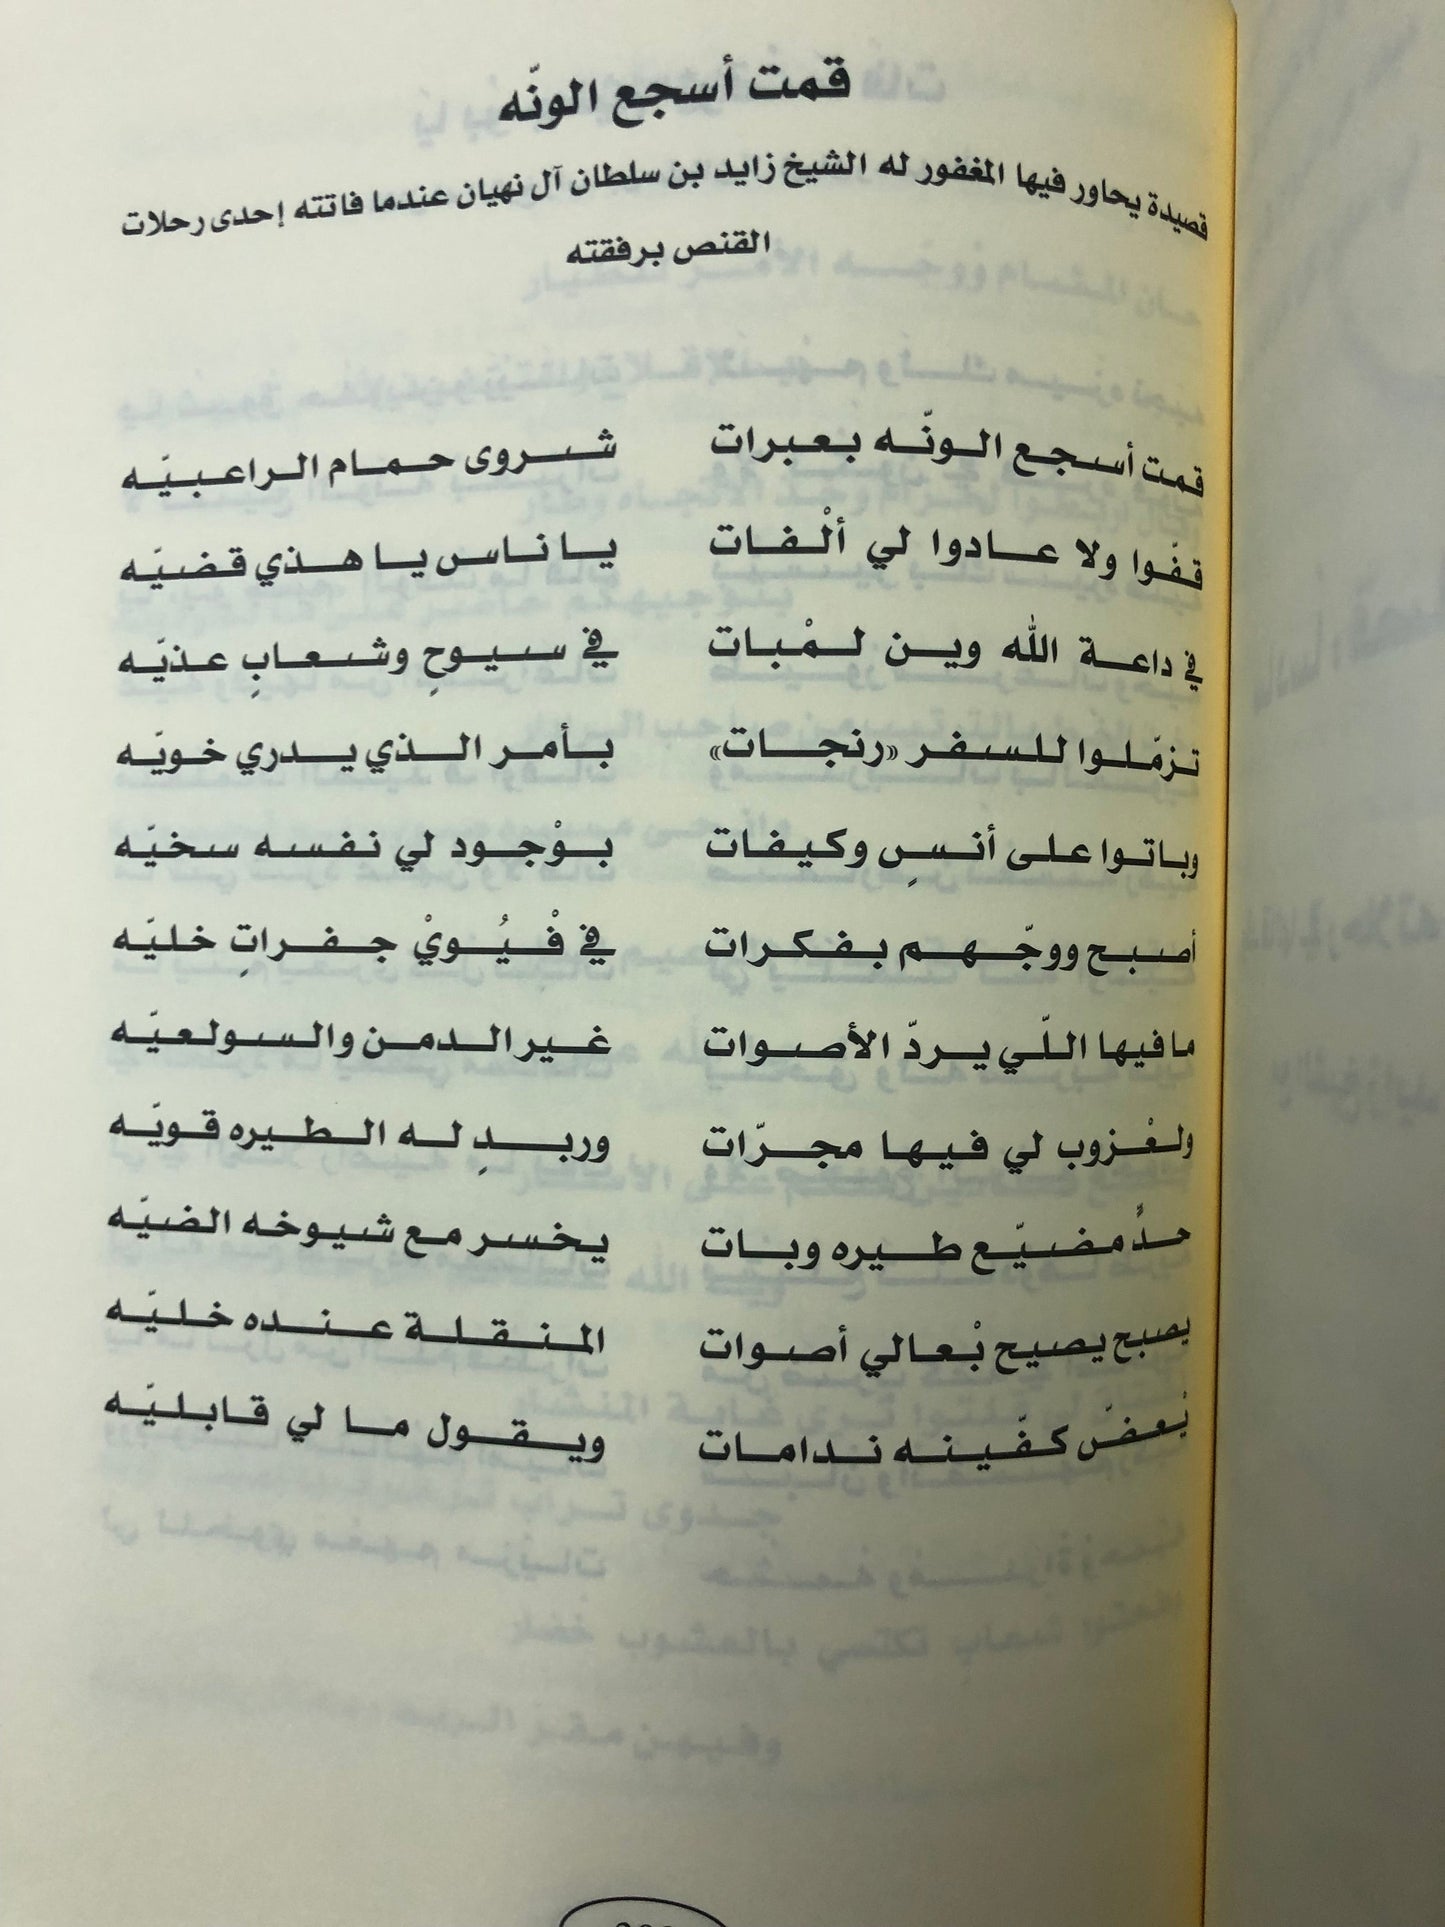 قمت أسجع الونّه
قصيدة يحاور فيها المغفور له الشيخ زايد بن سلطان آل نهيان عندما فاتته إحدى رحلات
القنص برفقته
قمت أسجع الونّه بعبرات شروى حمام الراعبيّه
قفّوا ولا عادوا لي ألْفات يا ناس يا هذي قضيّه
في داعة الله وين لمْبات في سيوحِ وشعابِ عذيّه
تزمّلوا للسفر «رنجات» بأمر الذي يدري خويّه
وباتوا على أنسٍ وكيفات بوْجود لي نفسه سخيّه
أصبح ووجّهم بفكرات في فْيُويْ جفراتِ خليّه
ما فيها اللّي يردّ الأصوات غير الدمن والسولعيّه
ولعْزوب لي فيها مجرّات وربدِ له الطيره قويّه
حدٍّ مضيّع طيره وبات يخسر مع شيوخه الضيّه
يصبح يصيح بْعالي أصوات المنقلة عنده خليّه
يْعضّ كفّينه ندامات ويقول ما لي قابليّه